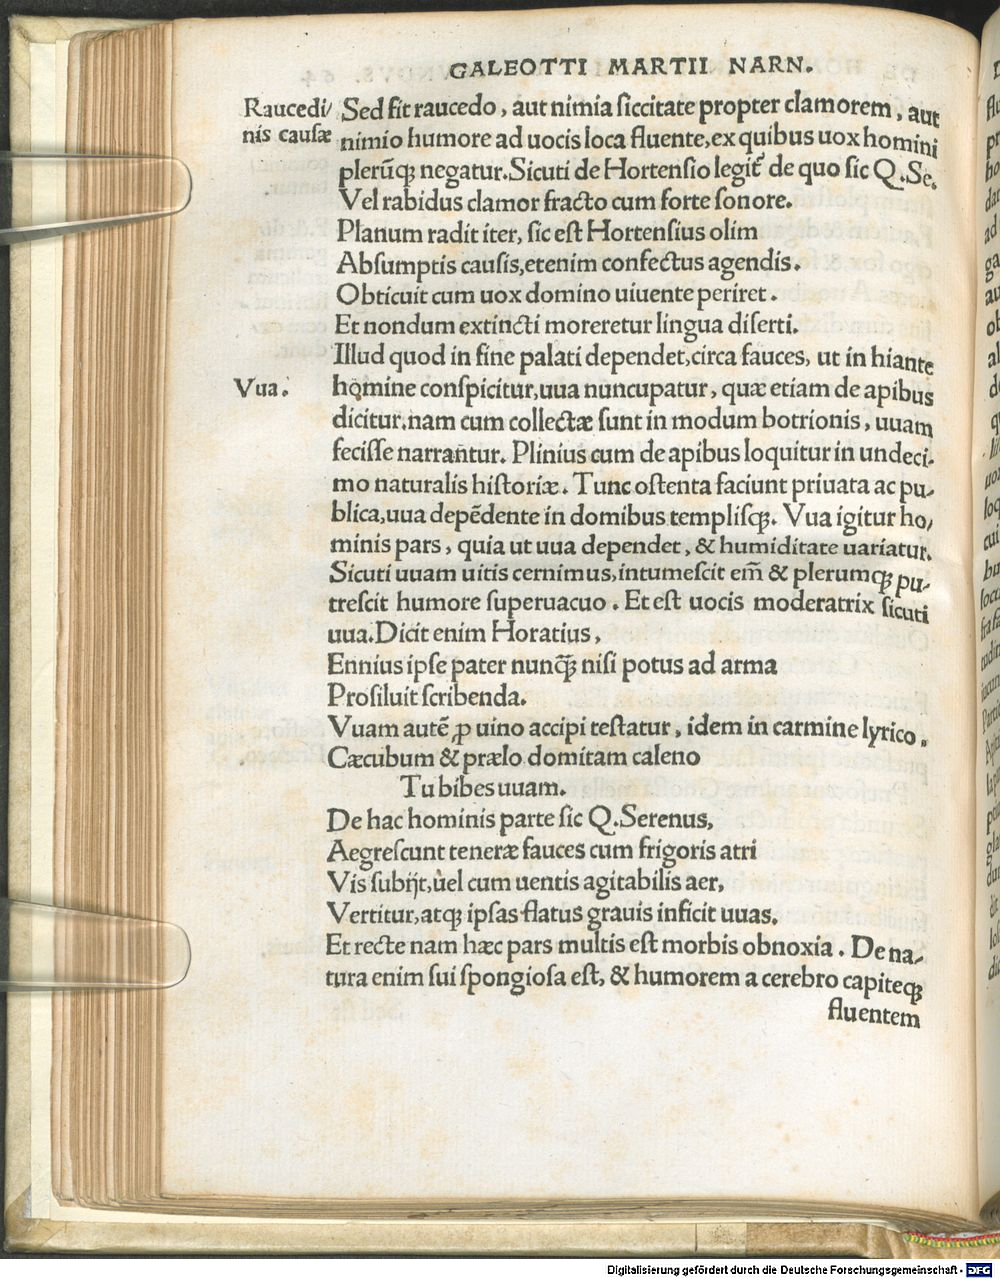 GALEOTTI MARTII NARN.
Raucedi/
nis causæ
Sed fit raucedo, aut nimia ſiccitate propter clamorem, aut
nimio humore ad uocis loca fluente, ex quibus uox homini
plerūq; negatur. Sicuti de Hortenſio legit᷑ de quo ſic Q. Se.
Vel rabidus clamor fracto cum forte ſonore.
Planum radit iter, ſic eſt Hortenſius olim
Abſumptis cauſis, etenim confectus agendis.
Obticuit cum uox domino uiuente periret.
Et nondum extincti moreretur lingua diſerti.
Illud quod in fine palati dependet, circa fauces, ut in hiante
Vua.
homine conſpicitur, uua nuncupatur, quæ etiam de apibus
dicitur. nam cum collectæ ſunt in modum botrionis, uuam
feciſſe narrantur. Plinius cum de apibus loquitur in undeci-
mo naturalis hiſtoriæ. Tunc oſtenta faciunt priuata ac pu-
blica, uua depēdente in domibus templiſq;. Vua igitur ho/
minis pars, quia ut uua dependet, & humiditate uariatur.
Sicuti uuam uitis cernimus, intumeſcit em̄ & plerumq; pu-
treſcit humore ſuperuacuo. Et eſt uocis moderatrix ſicuti
uua. Dicit enim Horatius,
Ennius ipſe pater nunq̄; niſi potus ad arma
Proſiluit ſcribenda.
Vuam autē ꝓ uino accipi teſtatur, idem in carmine lyrico.
Cæcubum & prælo domitam caleno
Tu bibes uuam.
De hac hominis parte ſic Q. Serenus,
Aegreſcunt teneræ fauces cum frigoris atri
Vis ſubijt, uel cum uentis agitabilis aer,
Vertitur, atq; ipſas flatus grauis inficit uuas.
Et recte nam hæc pars multis eſt morbis obnoxia. De na-
tura enim ſui ſpongioſa eſt, & humorem a cerebro capiteq;
fluentem
Digitalisierung gefördert durch die Deutsche Forschungsgemeinschaft - DFG